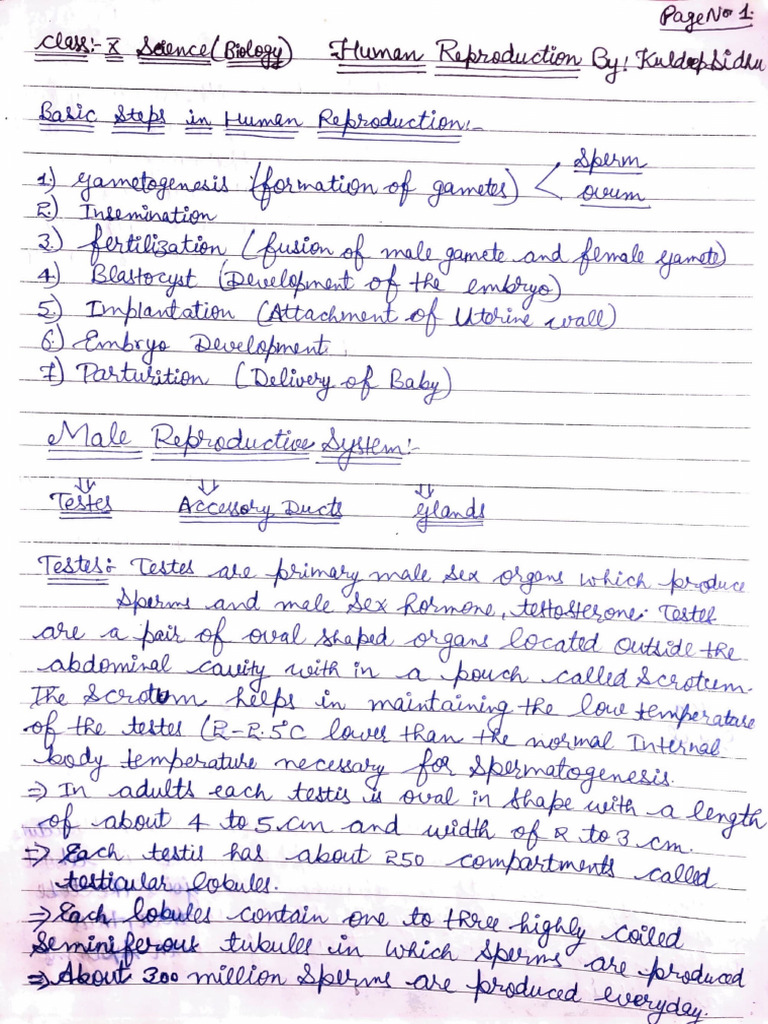 Page No 1.
Class:- X Science (Biology) Human Reproduction By: Kuldeep Sidhu
Basic Steps in Human Reproduction:-
1.) Gametogenesis (formation of gametes) < Sperm
ovum
2.) Insemination
3.) fertilization (fusion of male gamete and female gamete)
4.) Blastocyst (Development of the embryo)
5.) Implantation (Attachment of Uterine wall)
6.) Embryo Development
7.) Parturition (Delivery of Baby)
Male Reproductive System:-
⇓ ⇓ ⇓
Testes Accessory Ducts Glands
Testes:- Testes are primary male sex organs which produce
Sperms and male sex hormone, testosterone. Testes
are a pair of oval shaped organs located outside the
abdominal cavity with in a pouch called Scrotum.
The Scrotum helps in maintaining the low temperature
of the testes (2-2.5°C lower than the normal Internal
body temperature necessary for spermatogenesis.
⇒ In adults each testis is oval in shape with a length
of about 4 to 5 cm and width of 2 to 3 cm.
⇒ Each testis has about 250 compartments called
testicular lobules.
⇒ Each lobules contain one to three highly coiled
Seminiferous tubules in which sperms are produced
⇒ About 300 million sperms are produced everyday.